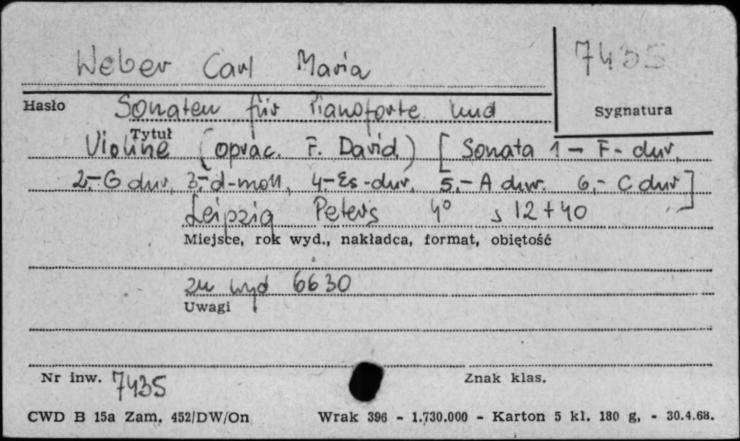 Weber Carl Maria
7435
Hasło
Sonaten für Pianoforte und
Sygnatura
Tytuł
Violine (oprac. F. David) [Sonata 1 - F-dur,
2,- G dur, 3,- d-moll, 4,- Es-dur, 5,- A dur. 6,- C dur]
Leipzig Peters 4° s 12+40
Miejsce, rok wyd., nakładca, format, objętość
zu wyd 6630
Uwagi
Nr inw. 7435
Znak klas.
CWD B 15a Zam. 452/DW/On Wrak 396 - 1.730.000 - Karton 5 kl. 180 g, - 30.4.68.